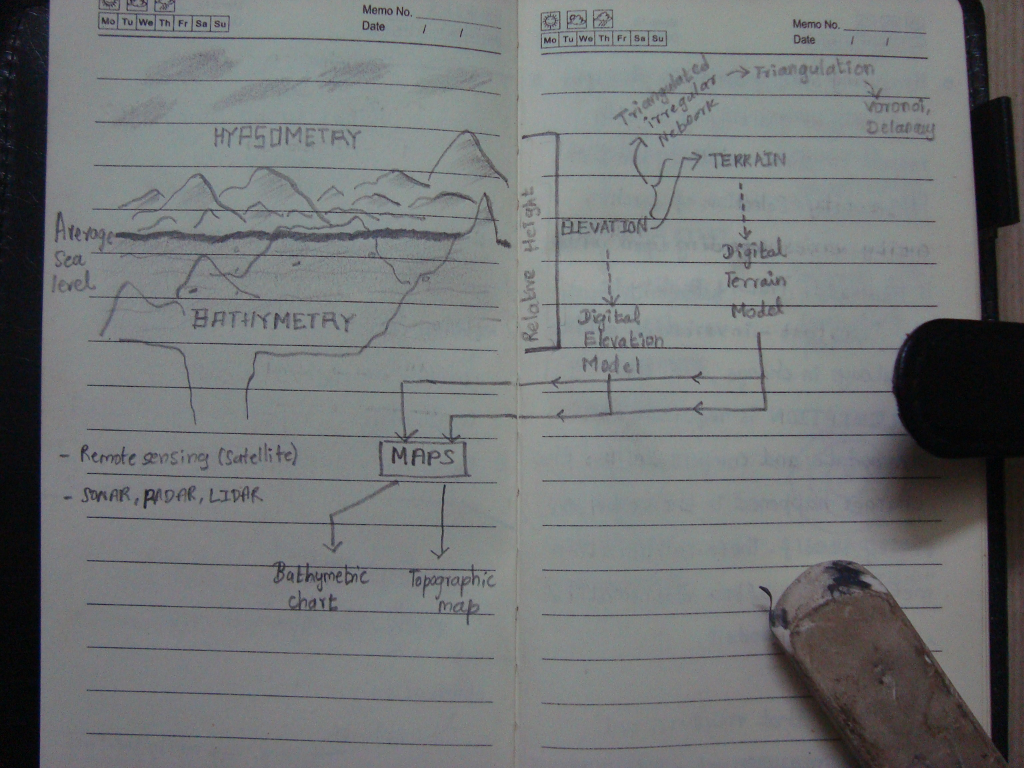 Memo No.
Mo Tu We Th Fr Sa Su
Date / /
HYPSOMETRY
Average
sea
level
BATHYMETRY
- Remote sensing (satellite)
- SONAR, RADAR, LIDAR
MAPS
Bathymetric
chart
Topographic
map
Memo No.
Mo Tu We Th Fr Sa Su
Date / /
Triangulated
irregular
Network
Triangulation
Voronoi,
Delanay
TERRAIN
Relative Height
ELEVATION
Digital
Terrain
Model
Digital
Elevation
Model